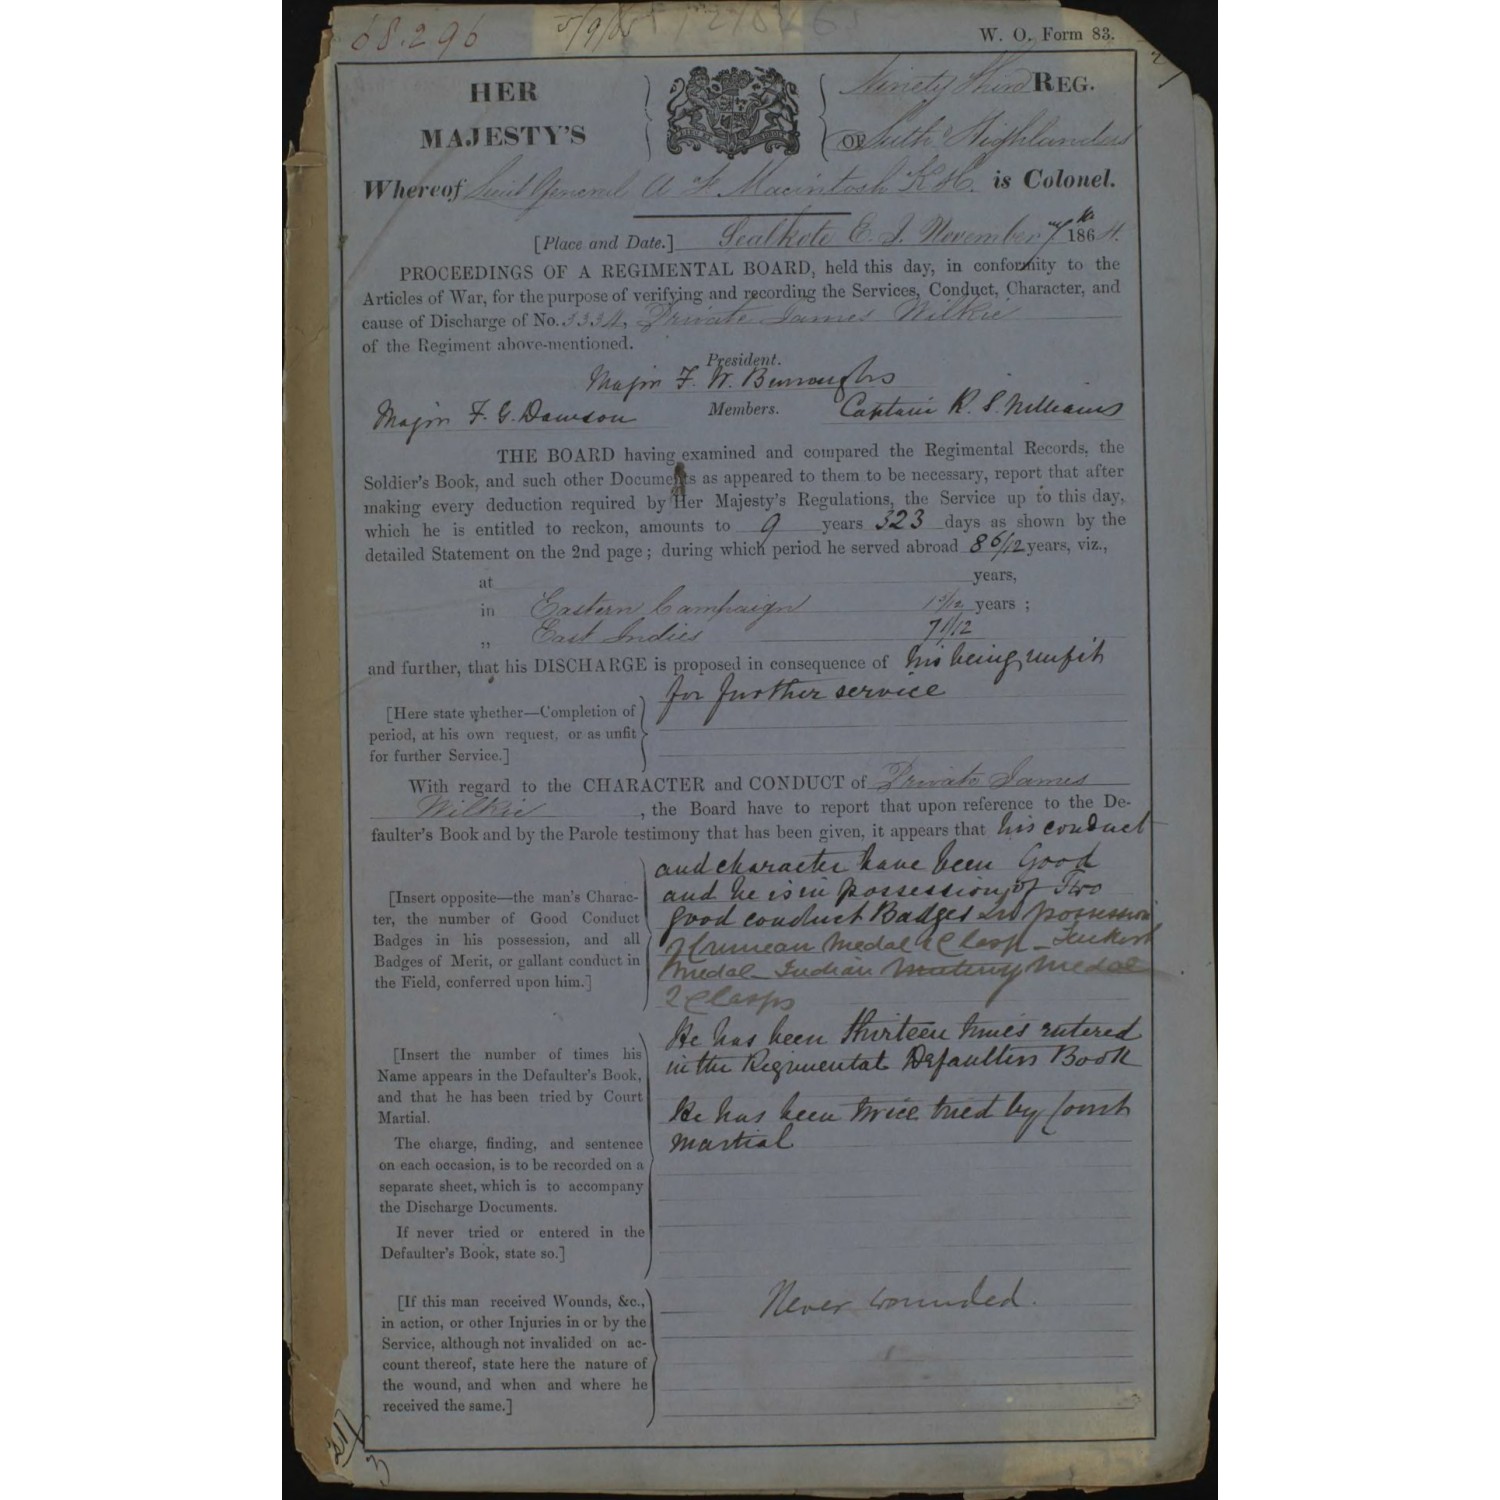 68.296 5/9/65
W. O. Form 83.
HER MAJESTY'S
Ninety Third REG.
OF Suth Highlanders
Whereof Lieut General A F Macintosh K H. is Colonel.
[Place and Date.] Sealkote E. I. November 7th 1864.
PROCEEDINGS OF A REGIMENTAL BOARD, held this day, in conformity to the
Articles of War, for the purpose of verifying and recording the Services, Conduct, Character, and
cause of Discharge of No. 3334, Private James Wilkie
of the Regiment above-mentioned.
President.
Major F. W. Burroughs
Major F. G. Dawson Members. Captain R. S. Williams
THE BOARD having examined and compared the Regimental Records, the
Soldier's Book, and such other Documents as appeared to them to be necessary, report that after
making every deduction required by Her Majesty's Regulations, the Service up to this day,
which he is entitled to reckon, amounts to 9 years 323 days as shown by the
detailed Statement on the 2nd page; during which period he served abroad 8 6/12 years, viz.,
at years,
in Eastern Campaign 1 5/12 years;
„ East Indies 7 1/12
and further, that his DISCHARGE is proposed in consequence of his being unfit
for further service
[Here state whether—Completion of
period, at his own request, or as unfit
for further Service.]
With regard to the CHARACTER and CONDUCT of Private James
Wilkie, the Board have to report that upon reference to the De-
faulter's Book and by the Parole testimony that has been given, it appears that his conduct
and character have been Good
and he is in possession of Two
good conduct Badges In possession
of Crimean Medal & Clasp – Turkish
Medal – Indian Mutiny Medal
2 Clasps
[Insert opposite—the man's Charac-
ter, the number of Good Conduct
Badges in his possession, and all
Badges of Merit, or gallant conduct in
the Field, conferred upon him.]
He has been thirteen times entered
in the Regimental Defaulters Book
He has been twice tried by Court
Martial
[Insert the number of times his
Name appears in the Defaulter's Book,
and that he has been tried by Court
Martial.
The charge, finding, and sentence
on each occasion, is to be recorded on a
separate sheet, which is to accompany
the Discharge Documents.
If never tried or entered in the
Defaulter's Book, state so.]
Never wounded.
[If this man received Wounds, &c.,
in action, or other Injuries in or by the
Service, although not invalided on ac-
count thereof, state here the nature of
the wound, and when and where he
received the same.]